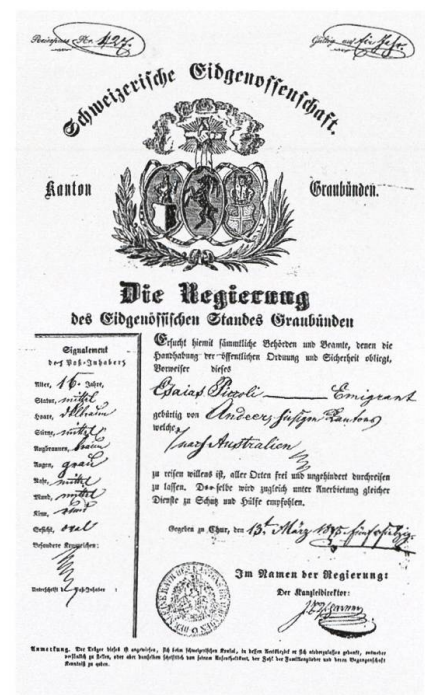 Reisepass Nr. 427.
Gültig auf ein Jahr.
Schweizerische Eidgenossenschaft.
Kanton Graubünden.
Die Regierung
des Eidgenössischen Standes Graubünden
Signalement
des Paß-Inhabers
Alter, 16 Jahre,
Statur, mittel
Haare, dklbraun
Stirne, mittel
Augbraunen, braun
Augen, grau
Nase, mittel
Mund, mittel
Kinn, rund
Gesicht, oval
Besondere Kennzeichen:
Unterschrift des Paß-Inhabers:
Ersucht hiemit sämmtliche Behörden und Beamte, denen die
Handhabung der öffentlichen Ordnung und Sicherheit obliegt,
Vorweiser dieses
Esaias Piccoli Emigrant
gebürtig von Andeer hiesigen Kantons
welcher
nach Australien
zu reisen willens ist, aller Orten frei und ungehindert durchreisen
zu lassen. Derselbe wird zugleich unter Anerbietung gleicher
Dienste zu Schutz und Hülfe empfohlen.
Gegeben zu Chur, den 13t. März 18
Im Namen der Regierung:
Der Kanzleidirektor:
Anmerkung. Der Träger dieses ist angewiesen, sich beim schweizerischen Konsul, in dessen Amtsbezirk er sich niederzulassen gedenkt, entweder
persönlich zu stellen, oder aber demselben schriftlich von seinem Aufenthaltsort, der Zahl der Familienglieder und deren Beygangenschaft
Kenntniß zu geben.